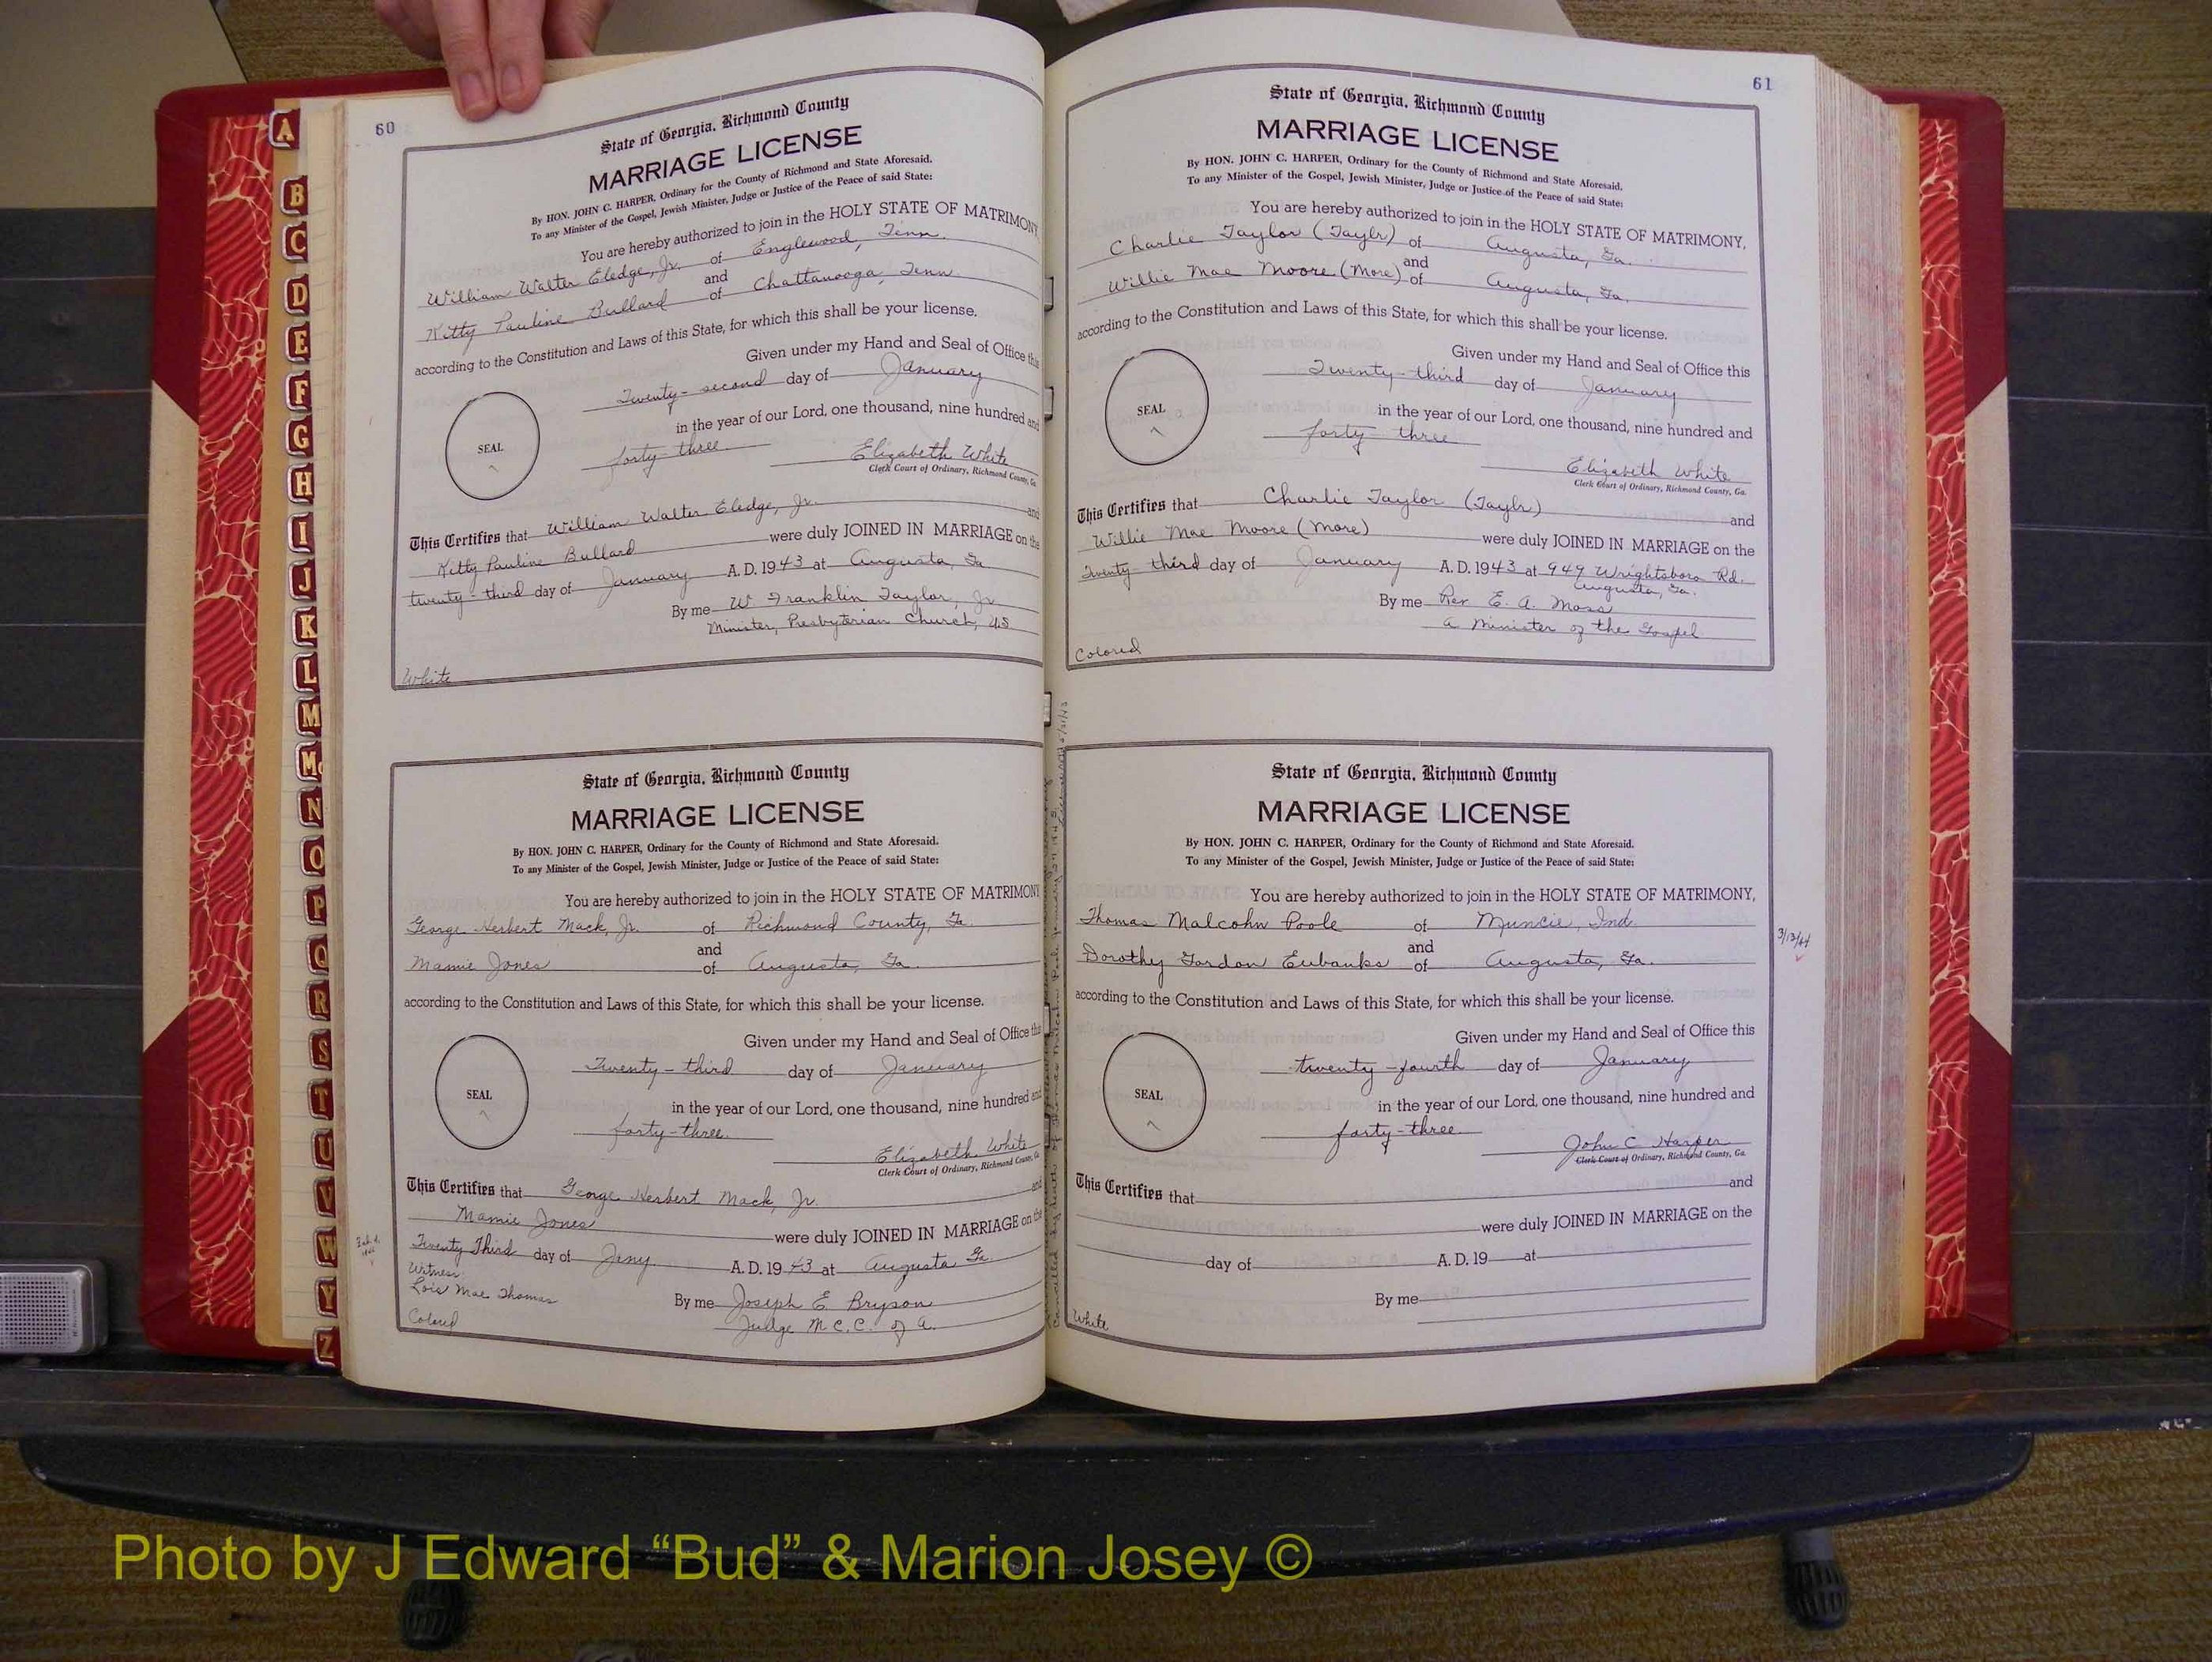 A
B
C
D
E
F
G
H
I
J
K
L
M
Mc
N
O
P
Q
R
S
T
U
V
W
Y
Z
60
State of Georgia, Richmond County
MARRIAGE LICENSE
By HON. JOHN C. HARPER, Ordinary for the County of Richmond and State Aforesaid.
To any Minister of the Gospel, Jewish Minister, Judge or Justice of the Peace of said State:
You are hereby authorized to join in the HOLY STATE OF MATRIMONY,
William Walter Eledge, Jr. of Englewood, Tenn.
and
Kitty Pauline Bullard of Chattanooga, Tenn.
according to the Constitution and Laws of this State, for which this shall be your license.
Given under my Hand and Seal of Office this
Twenty-second day of January
in the year of our Lord, one thousand, nine hundred and
SEAL
forty-three Elizabeth White
Clerk Court of Ordinary, Richmond County, Ga.
This Certifies that William Walter Eledge, Jr. and
Kitty Pauline Bullard were duly JOINED IN MARRIAGE on the
twenty-third day of January A. D. 1943 at Augusta, Ga
By me W Franklin Taylor, Jr
Minister, Presbyterian Church, U.S
White
State of Georgia, Richmond County
MARRIAGE LICENSE
By HON. JOHN C. HARPER, Ordinary for the County of Richmond and State Aforesaid.
To any Minister of the Gospel, Jewish Minister, Judge or Justice of the Peace of said State:
You are hereby authorized to join in the HOLY STATE OF MATRIMONY
George Herbert Mack, Jr. of Richmond County, Ga.
and
Mamie Jones of Augusta, Ga.
according to the Constitution and Laws of this State, for which this shall be your license.
Given under my Hand and Seal of Office this
Twenty-third day of January
SEAL
in the year of our Lord, one thousand, nine hundred and
forty-three.
Elizabeth White
Clerk Court of Ordinary, Richmond County, Ga
This Certifies that George Herbert Mack, Jr. and
Mamie Jones were duly JOINED IN MARRIAGE on the
Twenty Third day of Jany. A. D. 1943 at Augusta Ga
Witness
Lois Mae Thomas
By me Joseph E. Bryson
Judge M.C.C. of A.
Colored
61
State of Georgia, Richmond County
MARRIAGE LICENSE
By HON. JOHN C. HARPER, Ordinary for the County of Richmond and State Aforesaid.
To any Minister of the Gospel, Jewish Minister, Judge or Justice of the Peace of said State:
You are hereby authorized to join in the HOLY STATE OF MATRIMONY,
Charlie Taylor (Taylr) of Augusta, Ga.
and
Willie Mae Moore (More) of Augusta, Ga.
according to the Constitution and Laws of this State, for which this shall be your license.
Given under my Hand and Seal of Office this
Twenty-third day of January
SEAL
in the year of our Lord, one thousand, nine hundred and
forty three
Elizabeth White
Clerk Court of Ordinary, Richmond County, Ga.
This Certifies that Charlie Taylor (Taylr) and
Willie Mae Moore (More) were duly JOINED IN MARRIAGE on the
Twenty third day of January A. D. 1943 at 949 Wrightsboro Rd.
Augusta, Ga.
By me Rev E. A. Moss
a Minister of the Gospel
Colored
State of Georgia, Richmond County
MARRIAGE LICENSE
By HON. JOHN C. HARPER, Ordinary for the County of Richmond and State Aforesaid.
To any Minister of the Gospel, Jewish Minister, Judge or Justice of the Peace of said State:
You are hereby authorized to join in the HOLY STATE OF MATRIMONY,
Thomas Malcohn Poole of Muncie, Ind.
and
3/13/44
Dorothy Gordon Eubanks of Augusta, Ga.
according to the Constitution and Laws of this State, for which this shall be your license.
Given under my Hand and Seal of Office this
twenty-fourth day of January
SEAL
in the year of our Lord, one thousand, nine hundred and
forty-three.
John C Harper
Clerk Court of Ordinary, Richmond County, Ga.
This Certifies that and
were duly JOINED IN MARRIAGE on the
day of A. D. 19 at
By me
White
Photo by J Edward “Bud” & Marion Josey ©